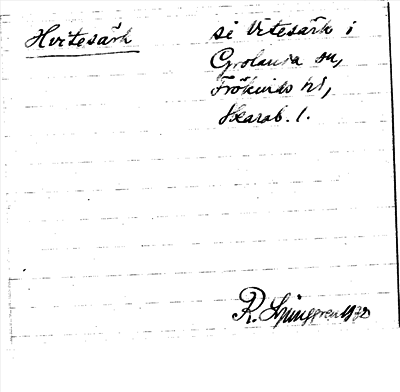 Hvitesärk
se Vitesärk i
Grolanda sn,
Frökinds hd,
Skarab. l.
R. Ljunggren 1932